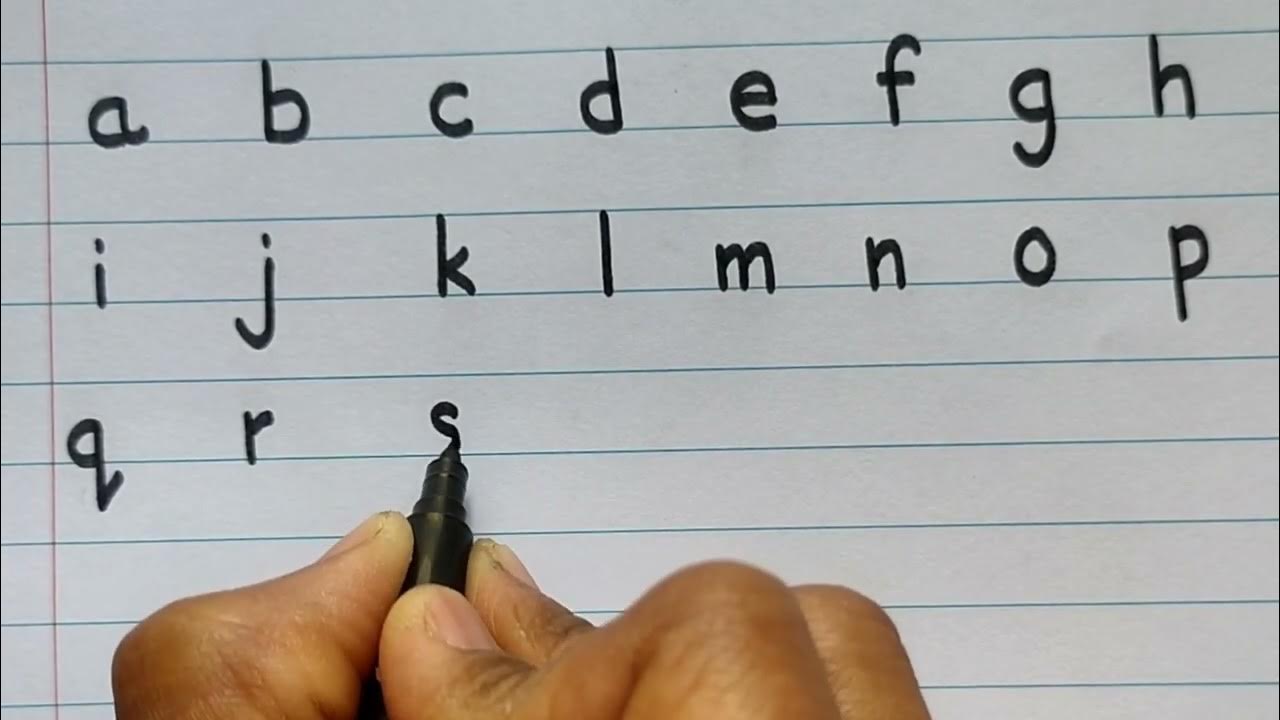 a b c d e f g h
i j k l m n o p
q r s